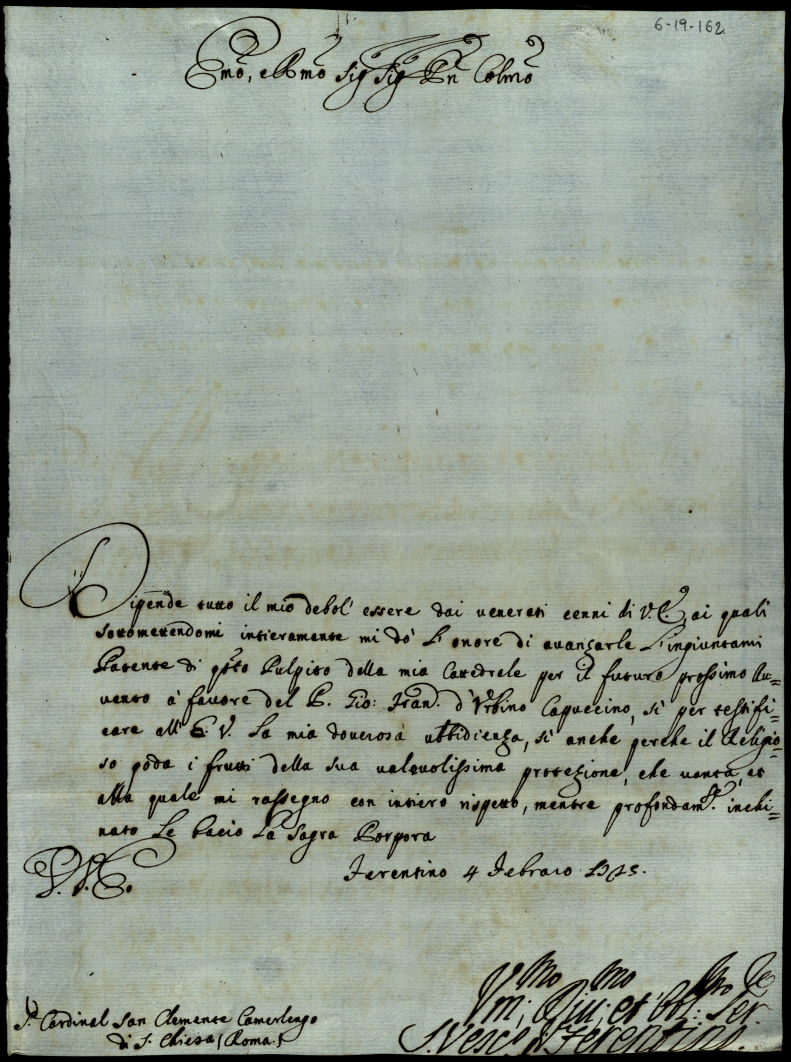 6-19-162
Emo, e Rmo Sig Sig Pn Colmo
Dipende tutto il mio debol' essere dai venerati cenni di V.E., ai quali
sottomettendomi intieramente mi dò l'onore di avanzarle l'ingiuntami
Patente di qsto Pulpito della mia Cattedrale per il futuro prossimo Au=
vento à favore del P. Gio: Fran. d'Urbino Capuccino, sì per testifi=
care all'E.V. la mia doverosa ubbidienza, sì anche perche il Religio=
so goda i frutti della sua valevolissima protezione, che vanta, et
alla quale mi rassegno con intiero rispetto, mentre profondamte. inchi=
nato Le bacio La Sagra Porpora
Ferentino 4 Febraio
S. Cardinal San Clemente Camerlengo
di S. Chiesa (Roma.)
Vmo, Divmo, et Obl: Ser.
Vesco di Ferentino.